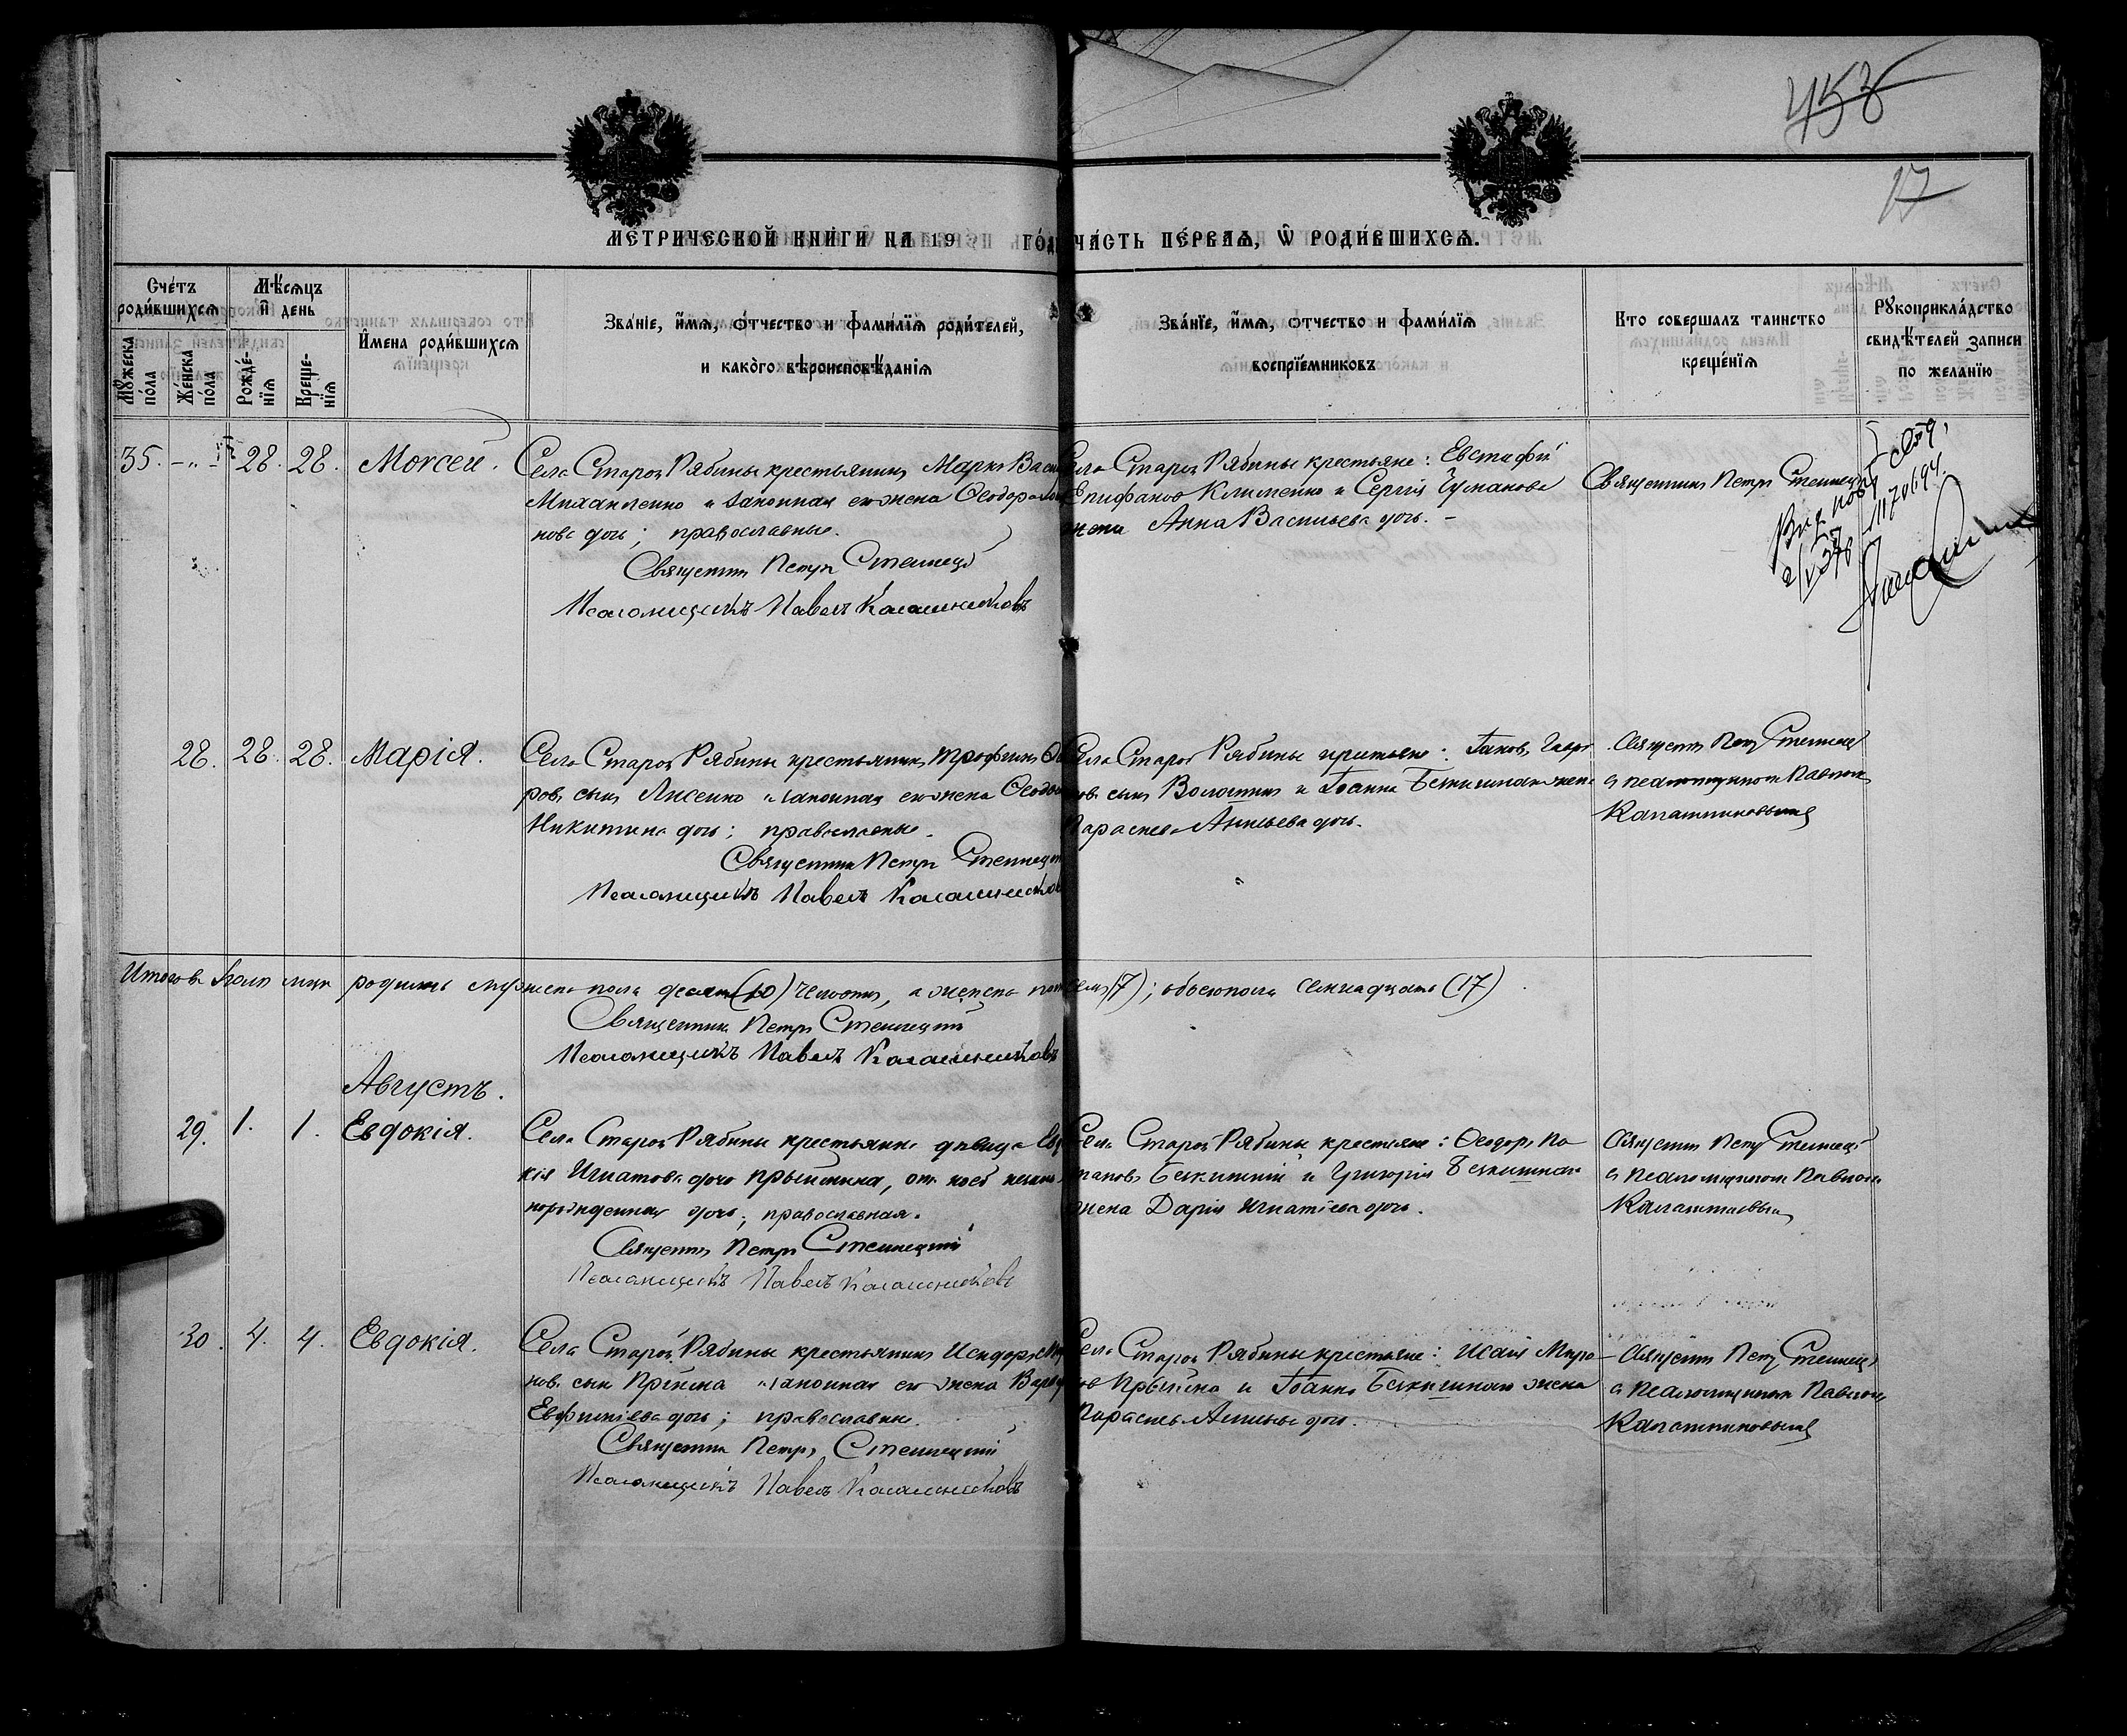 458
17
МЕТРИЧЕСКОЙ КНИГИ НА 19 ГОДЪ ЧАСТЬ ПЕРВАЯ, Ѡ РОДИВШИХСЯ.
Счетъ родившихся
Мѣсяцъ и день
Мужеска пола
Женска пола
Рожденїя
Крещенїя
Имена родившихся
Званїе, имя, отчество и фамилїя родителей,
и какого вѣроисповѣданїя
Званїе, имя, отчество и фамилїя
воспрїемниковъ
Кто совершалъ таинство
крещенїя
Рукоприкладство
свидѣтелей записи
по желанїю
35. 28. 28. Моисей.
Села Старой Рябины крестьянинъ Маркъ
Михайленко и законная его жена Ѳеодора
нова дочь; православные.
Священникъ Петръ Стеллецкій
Псаломщикъ Павелъ Калашниковъ
Села Старой Рябины крестьяне: Евстафій
Епифановъ Клименко и Сергія Чуманова
жена Анна Васильева дочь.
Священникъ Петръ Стеллецкій
28. 28. 28. Марія.
Села Старой Рябины крестьянинъ Трофимъ
ровъ сынъ Лисенко и законная его жена
Никитина дочь; православные.
Священникъ Петръ Стеллецкій
Псаломщикъ Павелъ Калашниковъ
Села Старой Рябины крестьяне: Іаковъ
сынъ и Іоанна жена
Параскева дочь.
Священникъ Петръ Стеллецкій
съ псаломщикомъ Павломъ
Калашниковымъ
Итого въ Іюлѣ мцѣ родилось мужеска пола десять (10) человѣкъ, а женска пола семь (7); обоего пола семнадцать (17)
Священникъ Петръ Стеллецкій
Псаломщикъ Павелъ Калашниковъ
Августъ.
29. 1. 1. Евдокія.
Села Старой Рябины крестьянка дѣвица Евдо
кія Игнатова дочь, отъ коей незаконно
порожденная дочь; православная.
Священникъ Петръ Стеллецкій
Псаломщикъ Павелъ Калашниковъ
Села Старой Рябины крестьяне: Ѳеодоръ По
таповъ и Григорія
жена Дарія Игнатіева дочь.
Священникъ Петръ Стеллецкій
съ псаломщикомъ Павломъ
Калашниковымъ
30. 4. 4. Евдокія.
Села Старой Рябины крестьянинъ Исидоръ
новъ сынъ и законная его жена
Евфиміева дочь; православные.
Священникъ Петръ Стеллецкій
Псаломщикъ Павелъ Калашниковъ
Села Старой Рябины крестьяне: Исаія Миро
новъ и Іоанна жена
Параскева дочь.
Священникъ Петръ Стеллецкій
съ псаломщикомъ Павломъ
Калашниковымъ